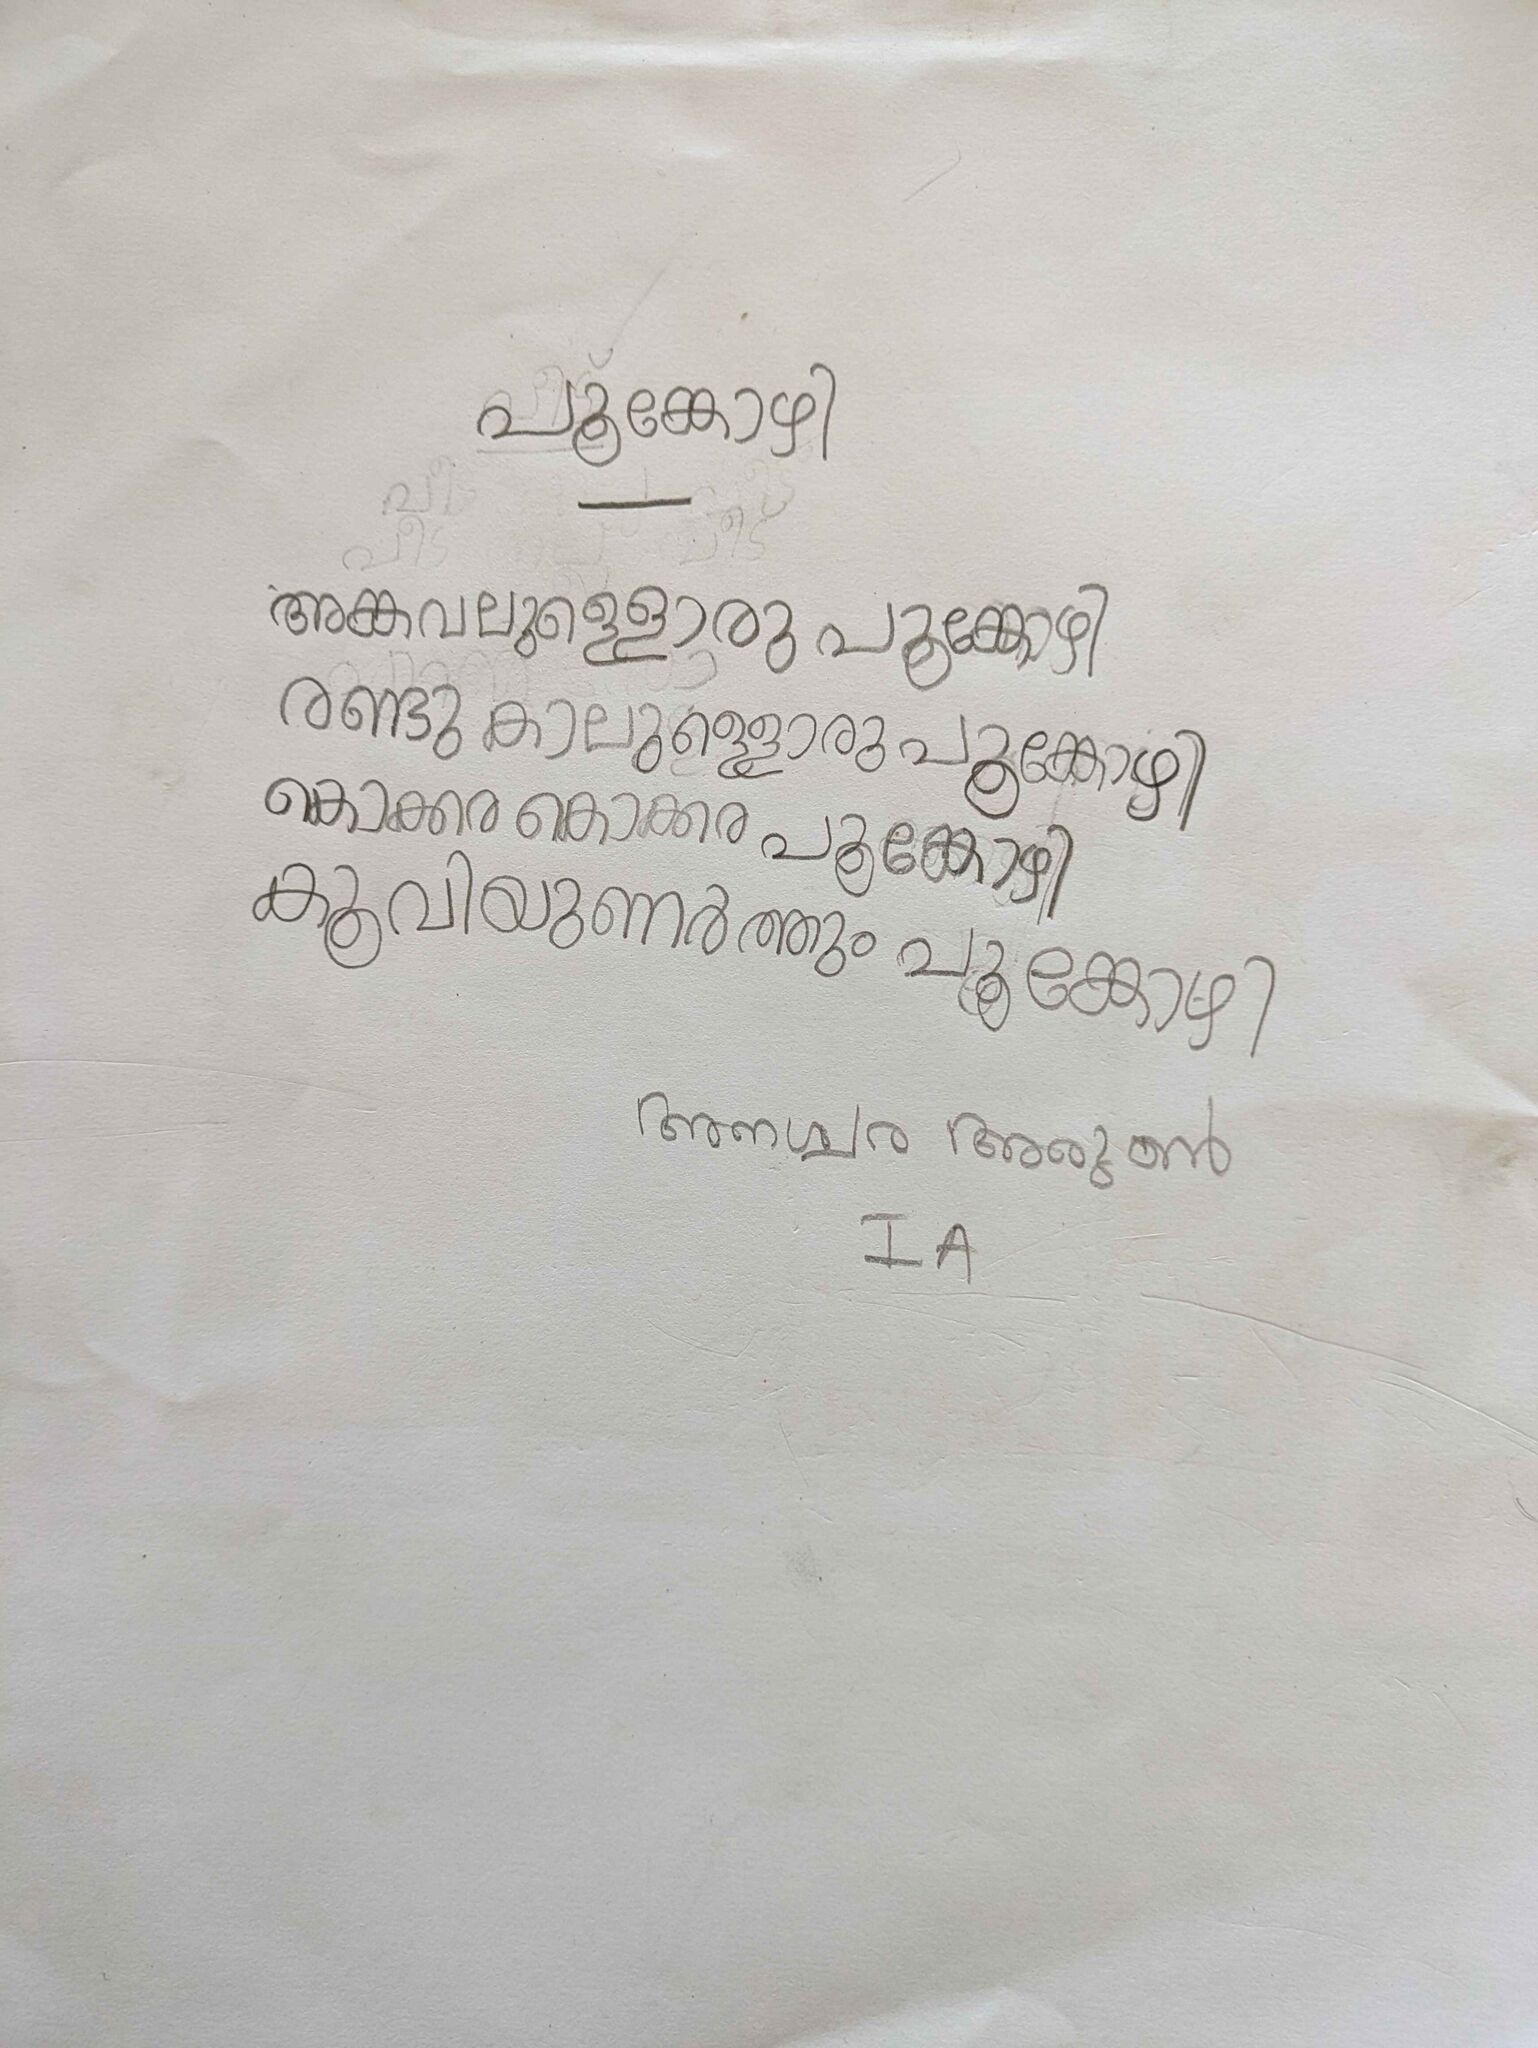 പൂക്കോഴി
അങ്കവലുള്ളൊരു പൂക്കോഴി
രണ്ടു കാലുള്ളൊരു പൂക്കോഴി
കൊക്കര കൊക്കര പൂക്കോഴി
കൂവിയുണർത്തും പൂക്കോഴി
അനശ്വര അരുൺ
I A